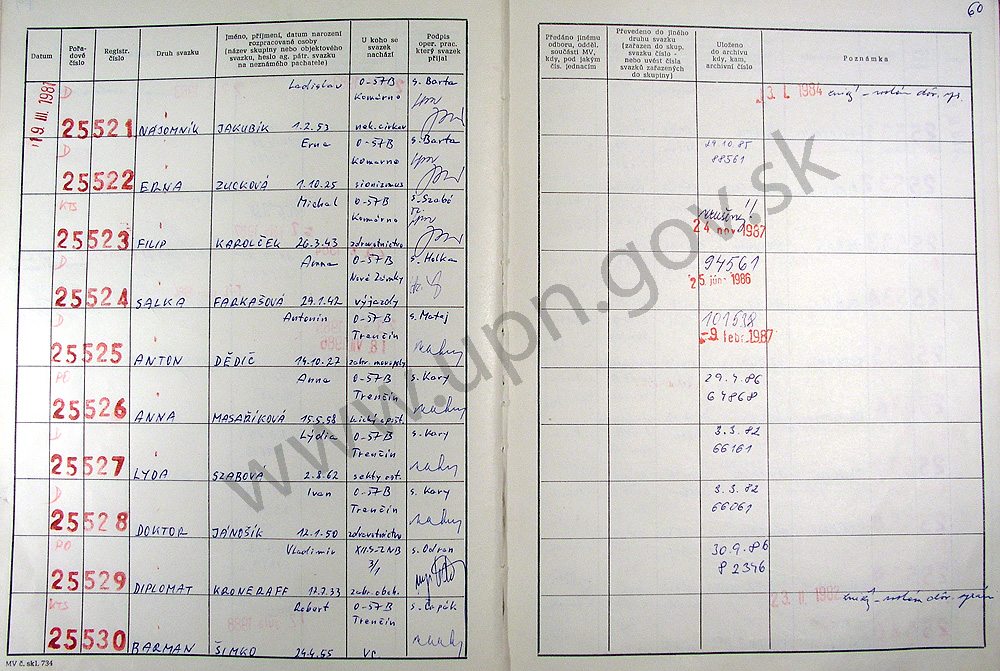 60
Datum
Pořa-
dové
číslo
Registr.
číslo
Druh svazku
Jméno, příjmení, datum narození
rozpracované osoby
(název skupiny nebo objektového
svazku, heslo ag. pátr. svazku
na neznámého pachatele)
U koho se
svazek
nachází
Podpis
oper. prac.
který svazek
přijal
Předáno jinému
odboru, odděl.
součásti MV,
kdy, pod jakým
čís. jednacím
Převedeno do jiného
druhu svazku
(zařazen do skup.
svazku číslo -
nebo uvést čísla
svazků zařazených
do skupiny)
Uloženo
do archivu
kdy, kam,
archivní číslo
Poznámka
19 III. 1981
D
Ladislav
0-57B
s. Barta
Komárno
25 521
NÁJOMNÍK
JAKUBÍK 1.2.53
nek. cirkev
1984
D
Erna
0-57B
s. Barta
Komárno
29.10.85
88561
25 522
ERNA
ZUCKOVÁ 1.10.25
sionizmus
KTS
Michal
0-57B
s. Szabó
Komárno
25 523
FILIP
KAROLČEK 26.3.43
zdravotníctvo
24. nov. 1987
D
Anna
0-57B
s. Holka
Nové Zámky
94561
25. júna 1986
25 524
SALKA
FARKAŠOVÁ 29.1.42
výjazdy
D
Antonín
0-57B
s. Matej
Trenčín
101538
-9. febr. 1987
25 525
ANTON
DĚDIČ 14.10.27
Anna
0-57B
s. Kory
Trenčín
29.4.86
64868
25 526
ANNA
MASAŘÍKOVÁ 15.5.58
D
Lýdia
0-57B
s. Kory
Trenčín
3.3.82
66161
25 527
LYDA
SZABOVÁ 2.8.62
sekty ost.
D
Ivan
0-57B
s. Kory
Trenčín
3.3.82
66061
25 528
DOKTOR
JÁNOŠÍK 12.1.50
zdravotníctvo
PO
Vladimír
s. Odran
3/1
30.9.86
82346
25 529
DIPLOMAT
KRONERAFF 12.2.33
zahr. obch.
KTS
Robert
0-57B
s. Čupák
Trenčín
25 530
BARMAN
ŠIMKO 24.4.55
MV č. skl. 734
www.upn.gov.sk